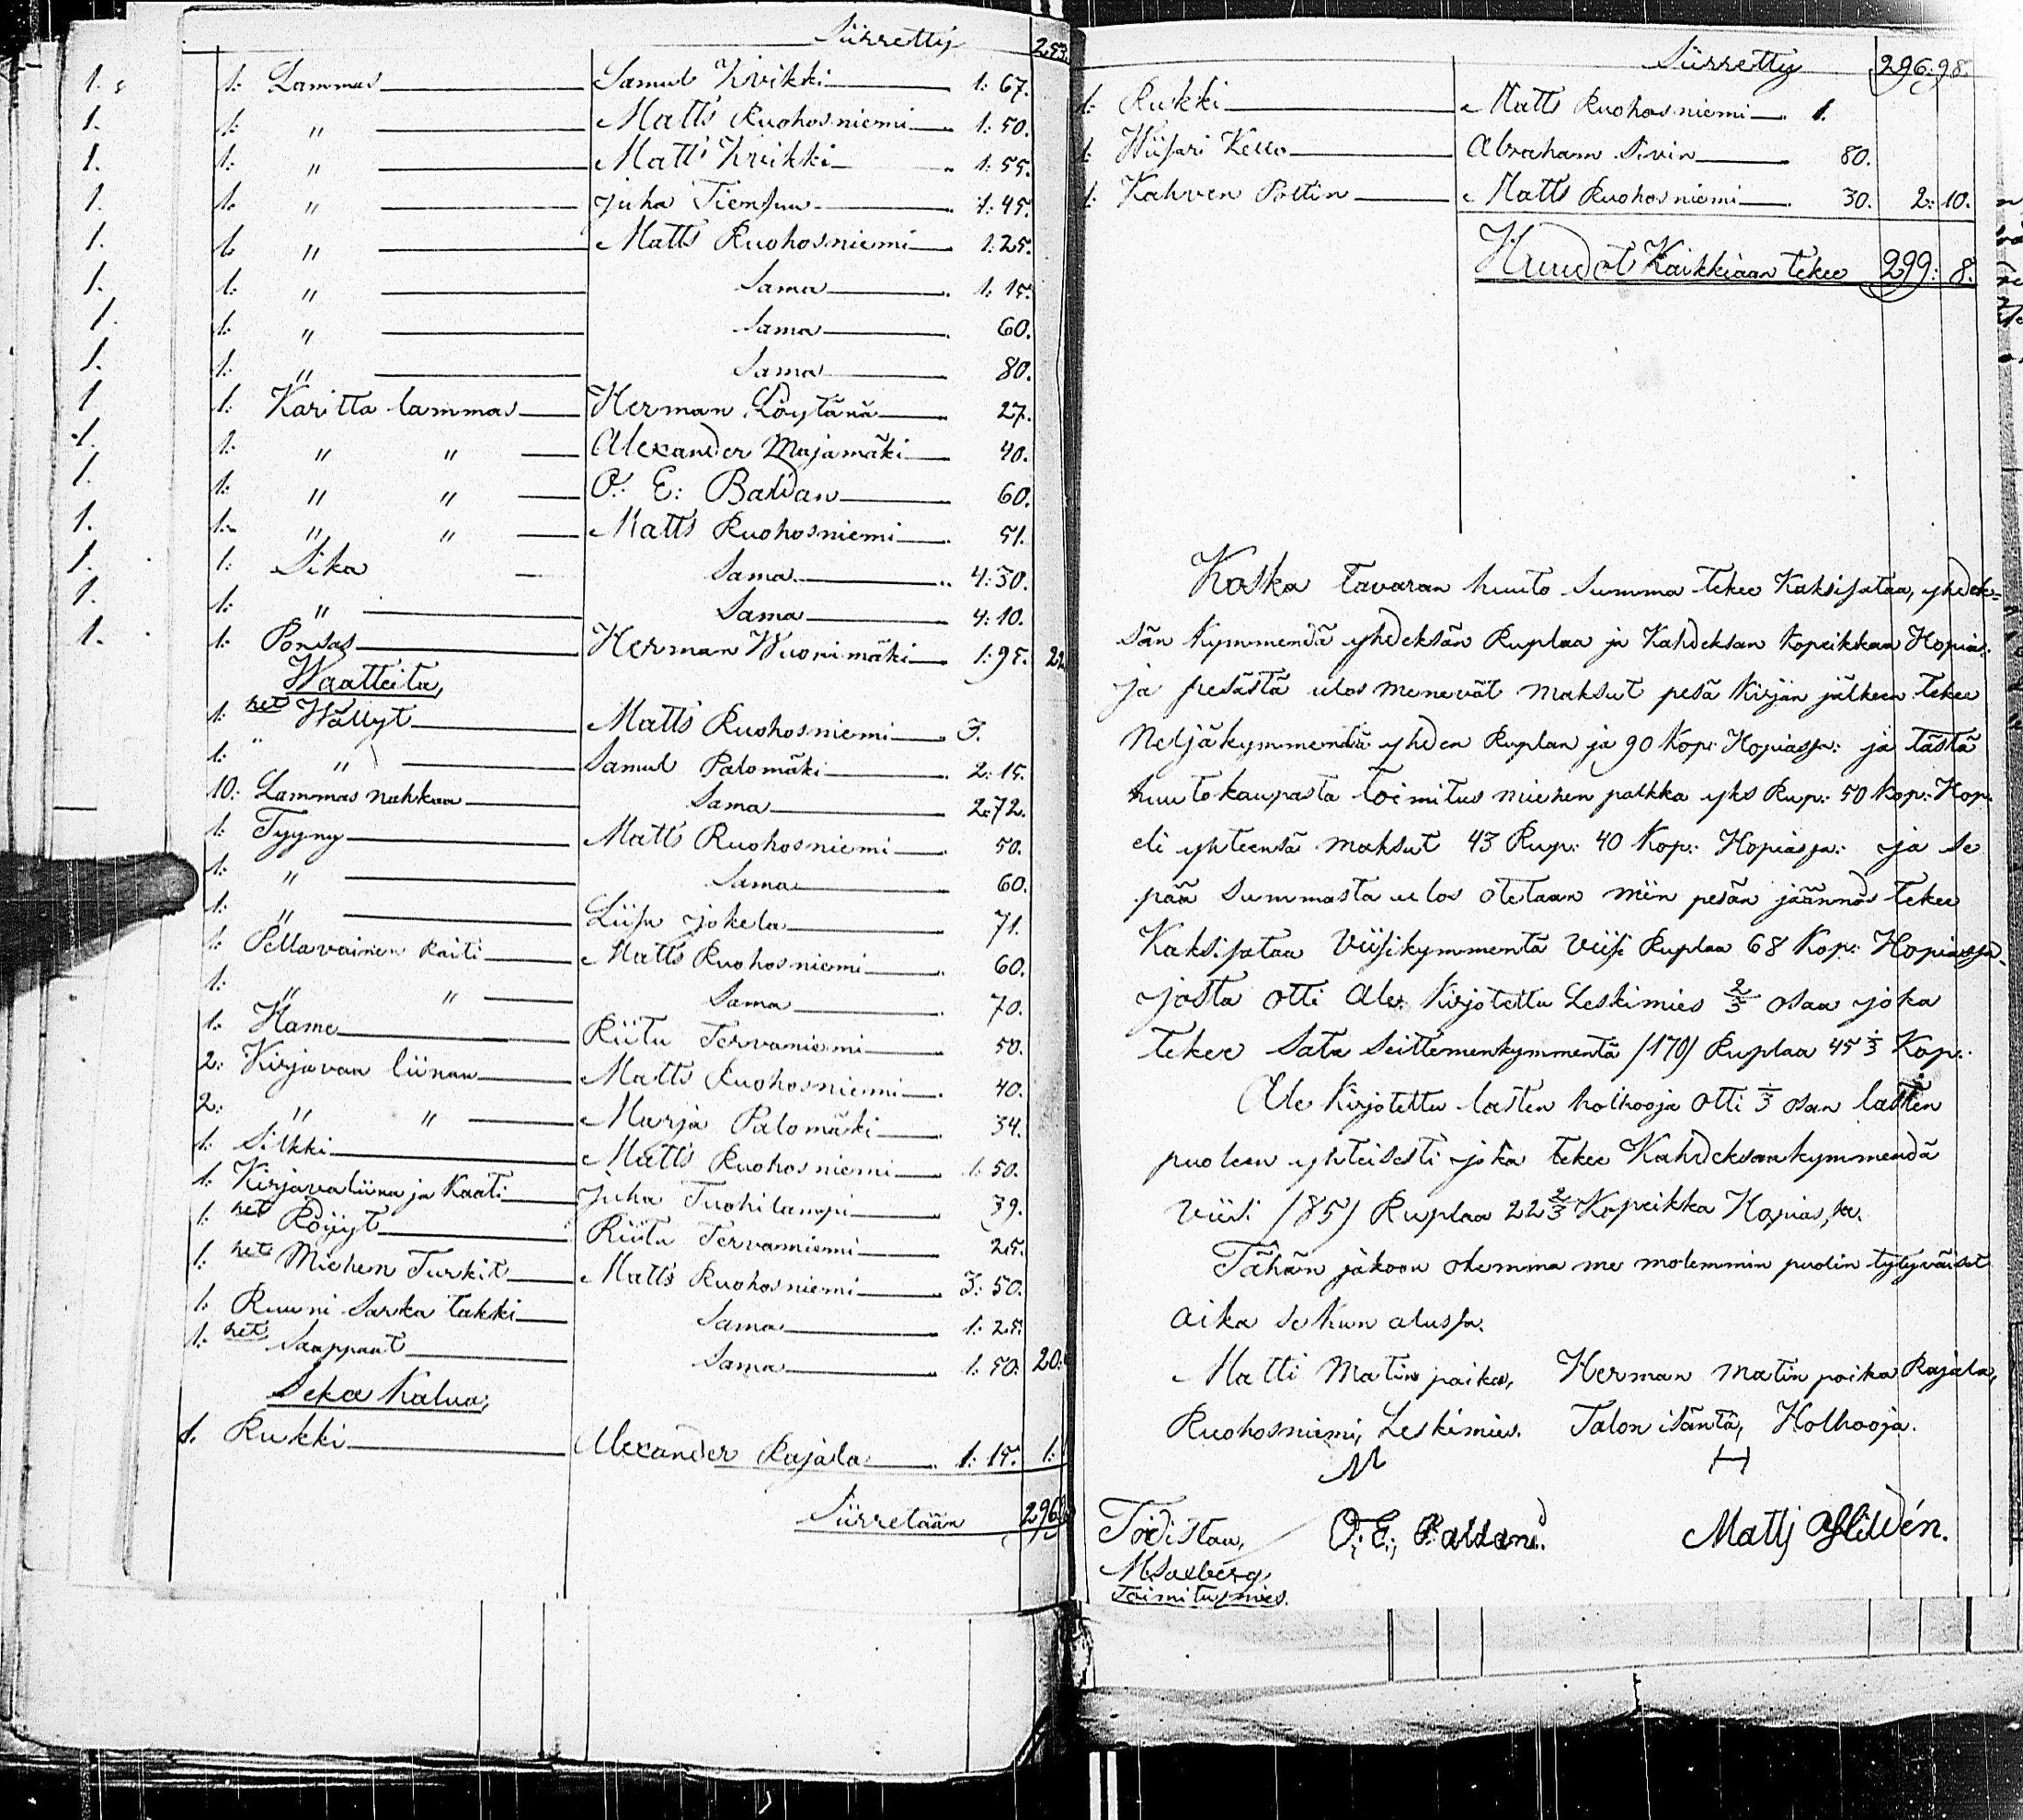 Siirretty 253.
1. 1: Lammas Samul Kvikki 1: 67.
1. 1: " Matts Ruohosniemi 1: 50.
1. 1: " Matts Kvikki 1: 55.
1. 1: " Juha Tiensuu 1: 45.
1. 1: " Matts Ruohosniemi 1: 25.
1. 1: " Sama 1: 15.
1. 1: " Sama 60.
1. 1: " Sama 80.
1 1: Karitta lammas Herman Löytänä 27.
1. 1: " " Alexander Majamäki 40.
1. 1: " " O: E: Baldan 60.
1. 1: " " Matts Ruohosniemi 51.
1. 1: Sika Sama 4: 30.
1. 1: " Sama 4: 10.
1. 1: Porsas Herman Wuorimäki 1: 95.
Waatteita,
1: ret Wällyt Matts Ruohosniemi 3.
1: " " Samul Palomäki 2: 15.
10: Lammas nahkaa Sama 2: 72.
1: Tyyny Matts Ruohosniemi 50.
1: " Sama 60.
1: " Liisa Jokela 71.
1: Pellavainen Raiti Matts Ruohosniemi 60.
1: " " Sama 70.
1: Hame Riitu Tervaniemi 50.
2: Kirjavaa liinaa Matts Ruohosniemi 40.
2: " " Marja Palomäki 34.
1: Silkki Matts Ruohosniemi 1: 50.
1: Kirjavaliina ja Kaati Juha Tuohilampi 39.
1: ret Röijyt Riitu Tervaniemi 25.
1: ret Miehen Turkit Matts Ruohosniemi 3: 50.
1: Ruuni Sarka takki Sama 1: 25.
1: ret Saappaat Sama 1: 50. 20:
Seka Kalua;
1. Rukki Alexander Rajala 1: 15. 1:
Siirretään 296
Siirretty 296: 98.
1: Rukki Matts Ruohosniemi 1.
1: Wiisari Kello Abraham Sivin 80.
1: Kahven Pottin Matts Ruohosniemi 30. 2: 10.
Huudot Kaikkiaan tekee 299: 8.
Koska tavaran huuto Summa tekee Kaksisataa, yhdek=
sän kymmendä yhdeksän Ruplaa ja Kahdeksan kopeikkaa Hopia:
ja pesästä ulos menevät maksut pesä Kirjan jälkeen tekee
Neljäkymmendä yhden Ruplan ja 90 Kop: Hopiassa: ja tästä
huutokaupasta toimitus miehen palkka yks Rup: 50 Kop: Hop:
eli yhteensä maksut 43 Rup: 40 Kop: Hopiassa: ja se
pää Summasta ulos otetaan niin pesän jäännös tekee
Kaksisataa Viisikymmentä Viisi Ruplaa 68 Kop: Hopiassa,
josta otti Ale Kirjotettu Leskimies 2/3 osaa joka
tekee Sata Seittemenkymmentä /170/ Ruplaa 45 1/3 Kop:
Ale Kirjotettu lasten holhooja otti 1/3 osan lasten
puoleen yhteisesti joka tekee Kahdeksankymmendä
viisi /85/ Ruplaa 22 2/3 Kopeikka Hopiassa.
Tähän jakoon olemma me molemmin puolin tytyväiset
aika se kun alussa.
Matti Matin poika, Herman Matin poika Rajala,
Ruohosniemi, Leskimies. Talon isäntä, Holhooja.
M H
Todistaa, O: E: Baldan. Matts Ylidén.
M. Saxberg,
Toimitusmies.